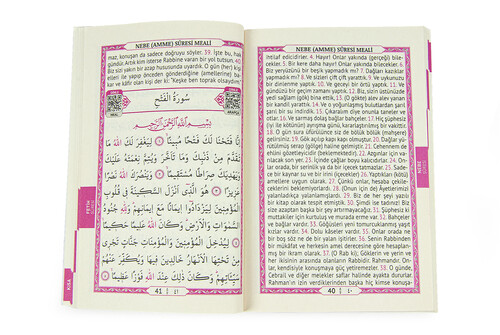 NEBE (AMME) SÛRESİ MEALİ
ihtilaf edicidirler. 4. Hayır! Onlar yakında (gerçeği) bile-
cekler. 5. Bir kere daha hayır! Onlar yakında bilecekler. 6.
Biz yeryüzünü bir beşik yapmadık mı? 7. Dağları kazıklar
yapmadık mı? 8. Ve sizleri çift çift yarattık. 9. Uykunuzu
bir dinlenme yaptık. 10. Ve geceyi bir örtü yaptık. 11. Ve
gündüzü bir geçim zamanı yaptık. 12. Biz, sizin üstünüzde
yedi sağlam (gök) bina ettik. 13. (O gökte) alev alev yanan
bir kandil yarattık. 14. Ve o yoğunlaşmış bulutlardan şarıl
şarıl bir su indirdik. 15. Onunla çıkaralım diye taneler ve
otlar. 16. Ve sarmaş dolaş bağlar bahçeler. 17. Hiç şüphesiz
(iyi ile kötünün) ayrışma günü, kararlaştırılmış bir vakittir.
18. O gün sûra üfürülünce siz de bölük bölük (mahşere)
gelirsiniz. 19. Gök açılıp kapı kapı olmuştur. 20. Dağlar
yürütülüp serap (gölge) haline gelmiştir. 21. Cehennem de
22. Azgınlar için va-
rılacak son yer. 23. İçinde çağlar boyu kalıcıdırlar. 24. On-
lar orada, bir serinlik ve içecek tatmazlar. 25. Sade-
ce bir kaynar su ve bir irin (içecekler) 26. Yaptıkları (kötü)
27. Çünkü onlar, hesaba çekile-
ceklerini beklemezlerdi. 28. (Onun için de) Âyetlerimizi
yalanladıkça yalanlamışlardı. 29. Biz de her bir şeyi yazılı
bir kitap olarak tespit etmiştik. 30. Şimdi ise tadınız! Biz
size azaptan başka bir şey artırmayacağız. 31. Şüphesiz ki
muttakiler için kurtuluş ve murada erme var. 32. Bahçeler
var, bağlar var. 33. Göğüsleri yeni tomurcuklanmış yaşıt
kızlar. 34. Dolu kâseler vardır. 35. Onlar orada ne
bir boş söz ne de bir yalan işitirler. 36. Senin Rabbinden
bir mükâfat ve herkesin amel derecesine göre hesabınca
bir ihsan olmak üzere. 37. (O Rab ki); Göklerin ve yerin ve
her ikisinin arasında olanların Rabbidir. Rahmandır. On-
lar, kendisiyle konuşmaya güç yetiremezler. 38. O günde,
Cebrail ve diğer melekler saflar halinde ayakta dururlar.
Rahman'ın izin verdiklerinden başka hiç kimse konuşa-
40 ٤٠
NEBE
SÛRESİ
NEBE (AMME) SÛRESİ MEALİ
maz, konuşan da sadece doğruyu söyler. 39. İşte bu, hak
gündür. Artık kim isterse Rabbine varan bir yol tutsun. 40.
Biz sizi yakın bir azap hususunda uyardık. O gün (her) kişi
elleri ile yapıp önceden gönderdiğine (amellerine) ba-
kar ve kâfir olan kişi der ki: "Keşke ben toprak olsaydım!"
سُورَةُ الْفَتْحِ
بِسْمِ اللّٰهِ الرَّحْمٰنِ الرَّحِيمِ
إِنَّا فَتَحْنَا لَكَ فَتْحًا مُبِينًا ۝ لِيَغْفِرَ لَكَ اللّٰهُ مَا
تَقَدَّمَ مِنْ ذَنْبِكَ وَمَا تَأَخَّرَ وَيُتِمَّ نِعْمَتَهُ عَلَيْكَ
وَيَهْدِيَكَ صِرَاطًا مُسْتَقِيمًا ۝ وَيَنْصُرَكَ اللّٰهُ نَصْرًا
عَزِيزًا ۝ هُوَ الَّذِي أَنْزَلَ السَّكِينَةَ فِي قُلُوبِ
الْمُؤْمِنِينَ لِيَزْدَادُوا إِيمَانًا مَعَ إِيمَانِهِمْ وَلِلّٰهِ جُنُودُ
السَّمٰوَاتِ وَالْأَرْضِ وَكَانَ اللّٰهُ عَلِيمًا حَكِيمًا ۝
لِيُدْخِلَ الْمُؤْمِنِينَ وَالْمُؤْمِنَاتِ جَنَّاتٍ تَجْرِي
مِنْ تَحْتِهَا الْأَنْهَارُ خَالِدِينَ فِيهَا وَيُكَفِّرَ عَنْهُمْ
سَيِّئَاتِهِمْ وَكَانَ ذٰلِكَ عِنْدَ اللّٰهِ فَوْزًا عَظِيمًا ۝
41 ٤١
FETİH
SÛRESİ
KISA